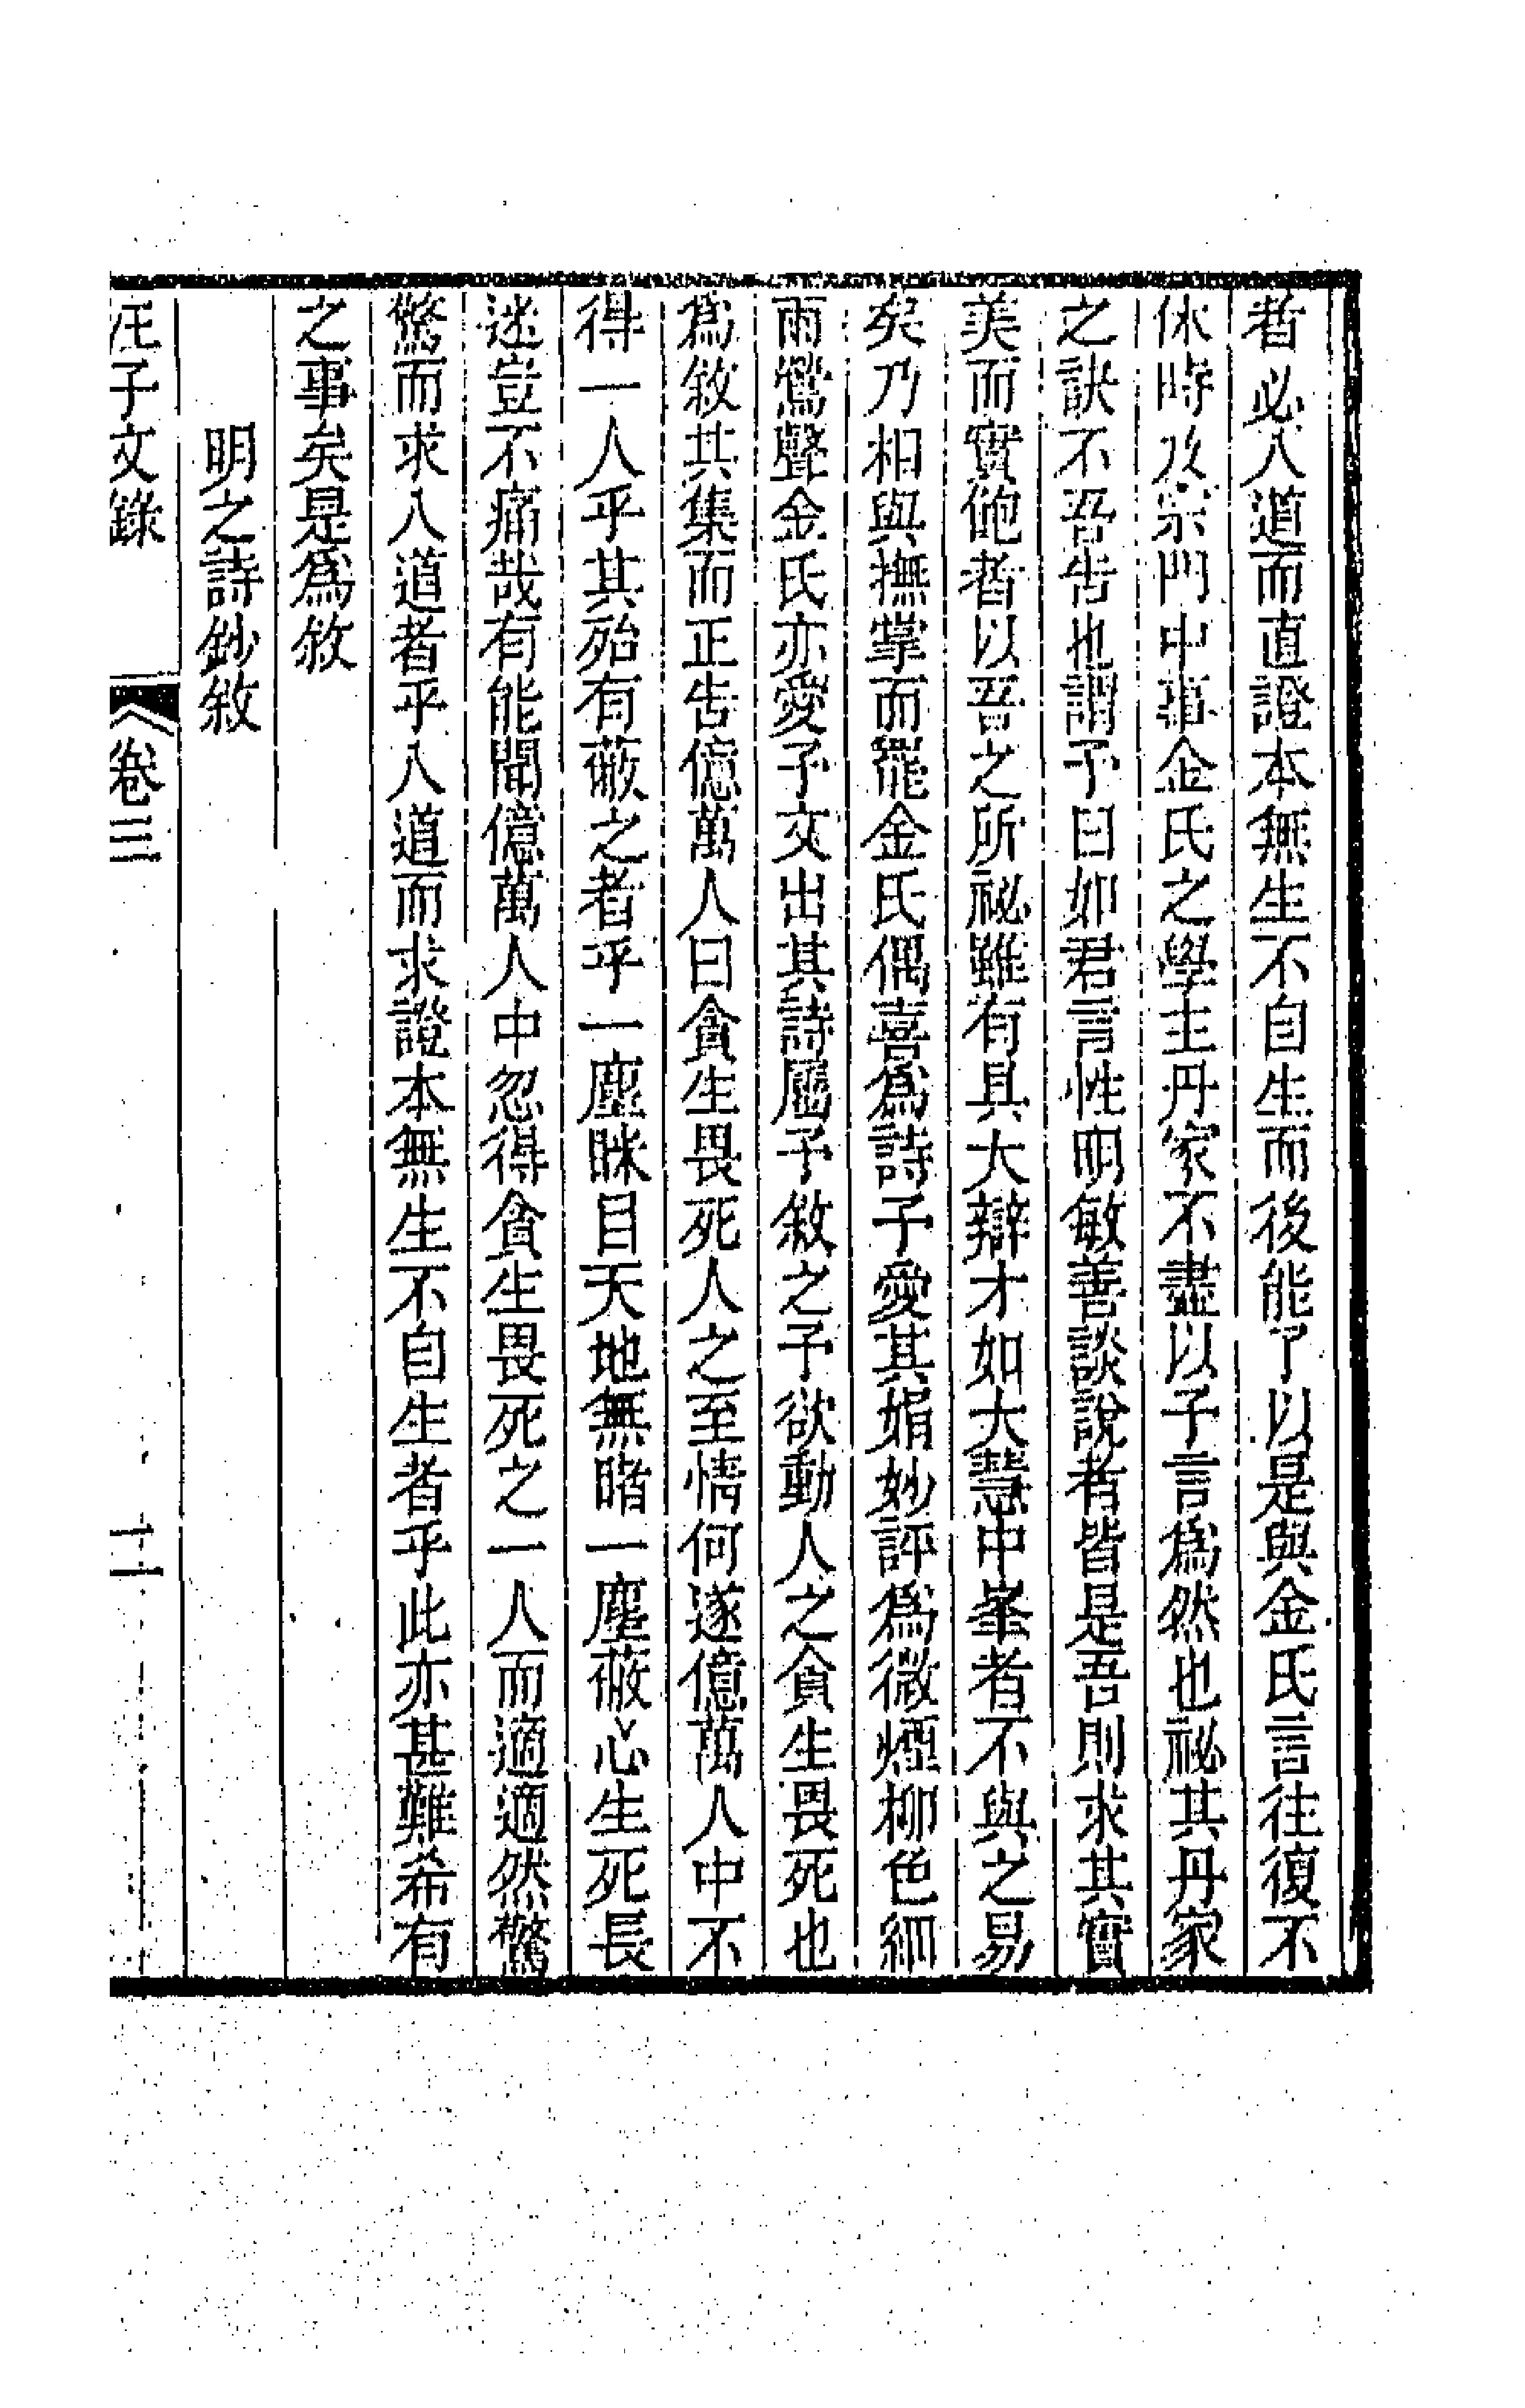 者必入道而直證本無生不自生而後能了以是與金氏言往復不
休時及宗門中事金氏之學主丹家不盡以予言爲然也祕其丹家
之訣不吾告也謂予曰如君言性明敏善談說者皆是吾則求其實
美而實飽者以吾之所祕雖有具大辯才如大慧中峯者不與之易
矣乃相與撫掌而罷金氏偶喜爲詩予愛其娟妙評爲微煙柳色細
雨鶯聲金氏亦愛予文出其詩屬予敘之予欲動人之貪生畏死也
爲敘其集而正告億萬人曰貪生畏死人之至情何遂億萬人中不
得一人乎其殆有蔽之者乎一塵眯目天地無睹一塵蔽心生死長
迷豈不痛哉有能聞億萬人中忽得貪生畏死之一人而適適然驚
驚而求入道者乎入道而求證本無生不自生者乎此亦甚難希有
之事矣是爲敘
明之詩鈔敘
汪子文錄 卷三 十一